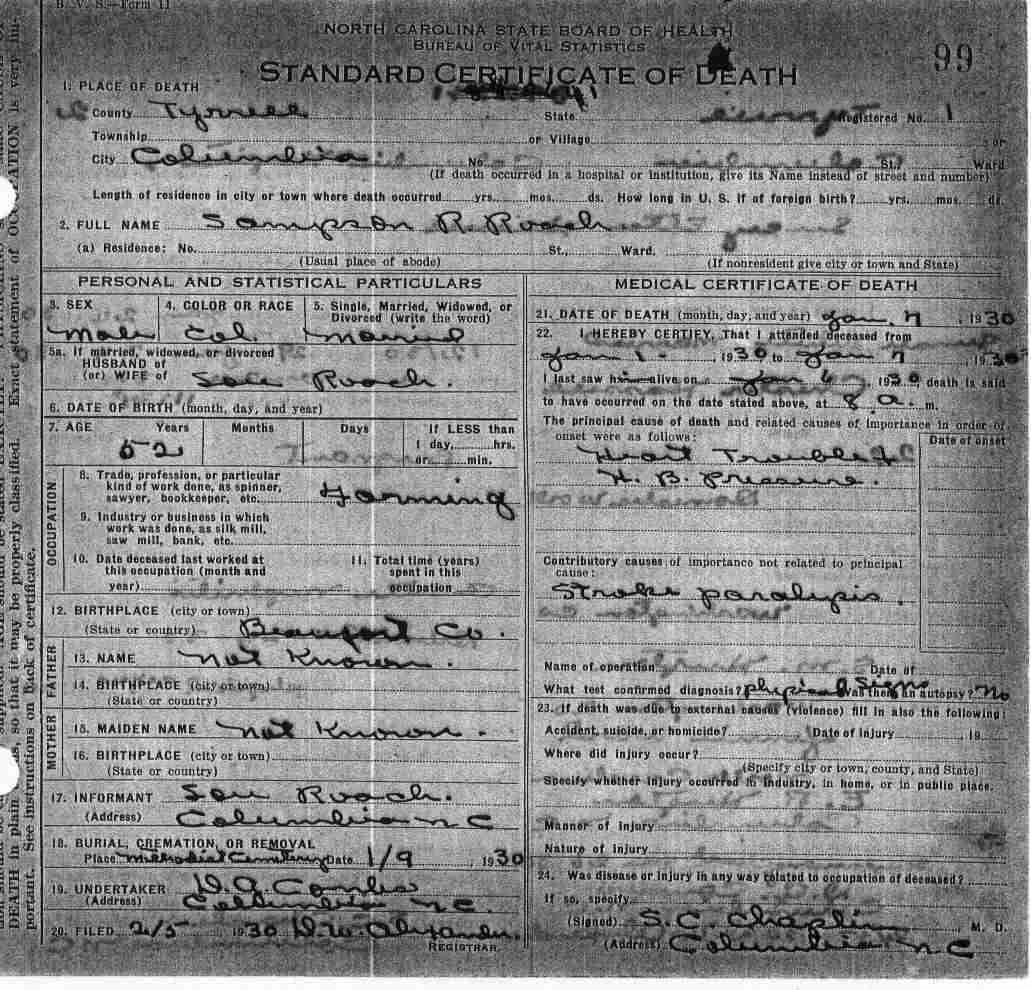 B. V. S.—Form 11
NORTH CAROLINA STATE BOARD OF HEALTH
BUREAU OF VITAL STATISTICS
99
STANDARD CERTIFICATE OF DEATH
1. PLACE OF DEATH
County Tyrrell State Registered No. 1
Township or Village or
City Columbia No. St. Ward
(If death occurred in a hospital or institution, give its Name instead of street and number)
Length of residence in city or town where death occurred yrs. mos. ds. How long in U. S. if of foreign birth? yrs. mos. ds.
2. FULL NAME Sampson R. Roach
(a) Residence: No. St., Ward.
(Usual place of abode) (If nonresident give city or town and State)
PERSONAL AND STATISTICAL PARTICULARS
3. SEX 4. COLOR OR RACE 5. Single, Married, Widowed, or
Divorced (write the word)
Male Col. Married
5a. If married, widowed, or divorced
HUSBAND of
(or) WIFE of Roach.
6. DATE OF BIRTH (month, day, and year)
7. AGE Years Months Days If LESS than
1 day, hrs.
or min.
52
OCCUPATION
8. Trade, profession, or particular
kind of work done, as spinner,
sawyer, bookkeeper, etc. Farming
9. Industry or business in which
work was done, as silk mill,
saw mill, bank, etc.
10. Date deceased last worked at 11. Total time (years)
this occupation (month and spent in this
year) occupation
12. BIRTHPLACE (city or town)
(State or country) Beaufort Co.
FATHER
13. NAME Not Known.
14. BIRTHPLACE (city or town)
(State or country)
MOTHER
15. MAIDEN NAME Not Known.
16. BIRTHPLACE (city or town)
(State or country)
17. INFORMANT Roach.
(Address) Columbia N C
18. BURIAL, CREMATION, OR REMOVAL
Place Methodist Cemetery Date 1/9, 1930
19. UNDERTAKER Combs
(Address) Columbia N.C.
20. FILED 2/5 1930 D. W. Alexander.
REGISTRAR.
MEDICAL CERTIFICATE OF DEATH
21. DATE OF DEATH (month, day, and year) Jan 7, 1930
22. I HEREBY CERTIFY, That I attended deceased from
Jan 1, 1930 to Jan 7, 1930
I last saw him alive on Jan 6, 1930 death is said
to have occurred on the date stated above, at 8 a. m.
The principal cause of death and related causes of importance in order of
onset were as follows: Date of onset
Heart Trouble &
H. B. Pressure.
Contributory causes of importance not related to principal
cause:
Stroke paralysis.
Name of operation Date of
What test confirmed diagnosis? physical Signs Was there an autopsy? No
23. If death was due to external causes (violence) fill in also the following:
Accident, suicide, or homicide? Date of injury, 19
Where did injury occur?
(Specify city or town, county, and State)
Specify whether injury occurred in industry, in home, or in public place.
Manner of injury
Nature of injury
24. Was disease or injury in any way related to occupation of deceased?
If so, specify
(Signed) S. C. Chaplin, M. D.
(Address) Columbia N C
DEATH in plain so that it may be properly classified. Exact statement of OCCUPATION is very im-
portant. See instructions on back of certificate.